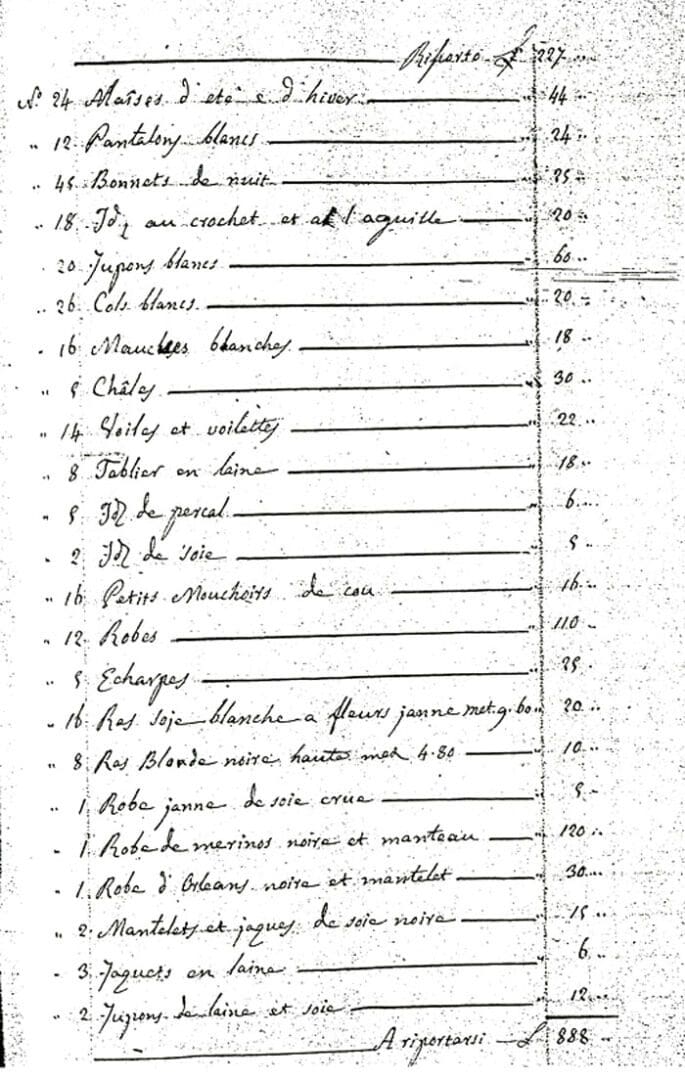 Riporto £ 227 ..
N.° 24 Maîses d'eté e d'hiver .. 44 ..
.. 12 Pantalons blancs .. 24 ..
.. 45 Bonnets de nuit .. 25 ..
.. 18 Id. au crochet et a l'aguille .. 20 ..
.. 20 Jupons blancs .. 60 ..
.. 26 Cols blancs .. 20 ..
.. 16 Manches blanches .. 18 ..
.. 5 Châles .. 30 ..
.. 14 Voiles et voilettes .. 22 ..
.. 8 Tablier en laine .. 18 ..
.. 5 Id. de percal .. 6 ..
.. 2 Id. de soie .. 5 ..
.. 16 Petits Mouchoirs de cou .. 16 ..
.. 12 Robes .. 110 ..
.. 5 Echarpes .. 25 ..
.. 16 Ras soie blanche a fleurs janne met. 9.60 .. 20 ..
.. 8 Ras Blonde noire haute met 4.80 .. 10 ..
.. 1 Robe janne de soie crue .. 5 ..
.. 1 Robe de merinos noire et manteau .. 120 ..
.. 1 Robe d'Orleans noire et mantelet .. 30 ..
.. 2 Mantelets et jaques de soie noire .. 15 ..
.. 3 Jaquets en laine .. 6 ..
.. 2 Jupons de laine et soie .. 12 ..
A riportarsi £ 888 ..